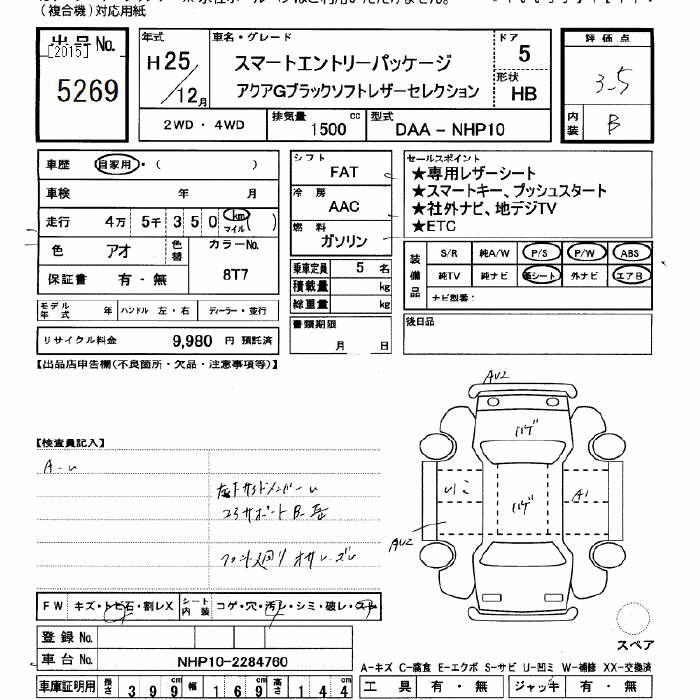 (複合機)対応用紙
出品No.
[2015]
5269
年式
H25/12月
車名・グレード
スマートエントリーパッケージ
アクアGブラックソフトレザーセレクション
ドア
5
形状
HB
2WD・4WD
排気量 1500 cc
型式 DAA-NHP10
評価点
3.5
内装 B
車歴 自家用・( )
車検 年 月
走行 4万 5千 350 km マイル ( )
色 アオ 色替
カラーNo.
8T7
保証書 有・無
モデル年式 年 ハンドル 左・右 ディーラー・並行
リサイクル料金 9,980 円 預託済
シフト
FAT
冷房
AAC
燃料
ガソリン
乗車定員 5 名
積載量 kg
総重量 kg
書類期限
月 日
セールスポイント
★専用レザーシート
★スマートキー、プッシュスタート
★社外ナビ、地デジTV
★ETC
装備品
S/R 純A/W P/S P/W ABS
純TV 純ナビ 革シート 外ナビ エアB
ナビ型番:
後日品
【出品店申告欄(不良箇所・欠品・注意事項等)】
【検査員記入】
A-u
AU2
ハゲ
ハゲ
A1
AU2
FW キズ・トビ石・割レX シート内装 コゲ・穴・汚レ・シミ・破レ・スレ
登録No.
車台No. NHP10-2284760
車庫証明用 長さ 399 cm 幅 169 cm 高さ 144 cm
スペア
A-キズ C-腐食 E-エクボ S-サビ U-凹ミ W-補修 XX-交換済
工具 有・無 ジャッキ 有・無